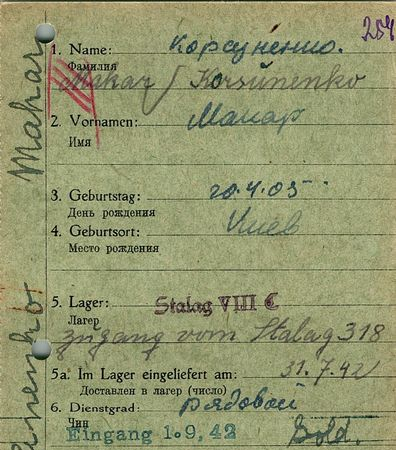 254
1. Name: Корсуненко.
Фамилия
Makar / Korsunenko
2. Vornamen: Макар
Имя
3. Geburtstag: 20.4.05
День рождения
4. Geburtsort: Киев
Место рождения
5. Lager: Stalag VIII C
Лагер
Zugang vom Stalag 318
5a. Im Lager eingeliefert am: 31.7.42
Доставлен в лагер (число)
6. Dienstgrad: рядовой
Чин
Eingang 1.9.42 Sold.
Makar